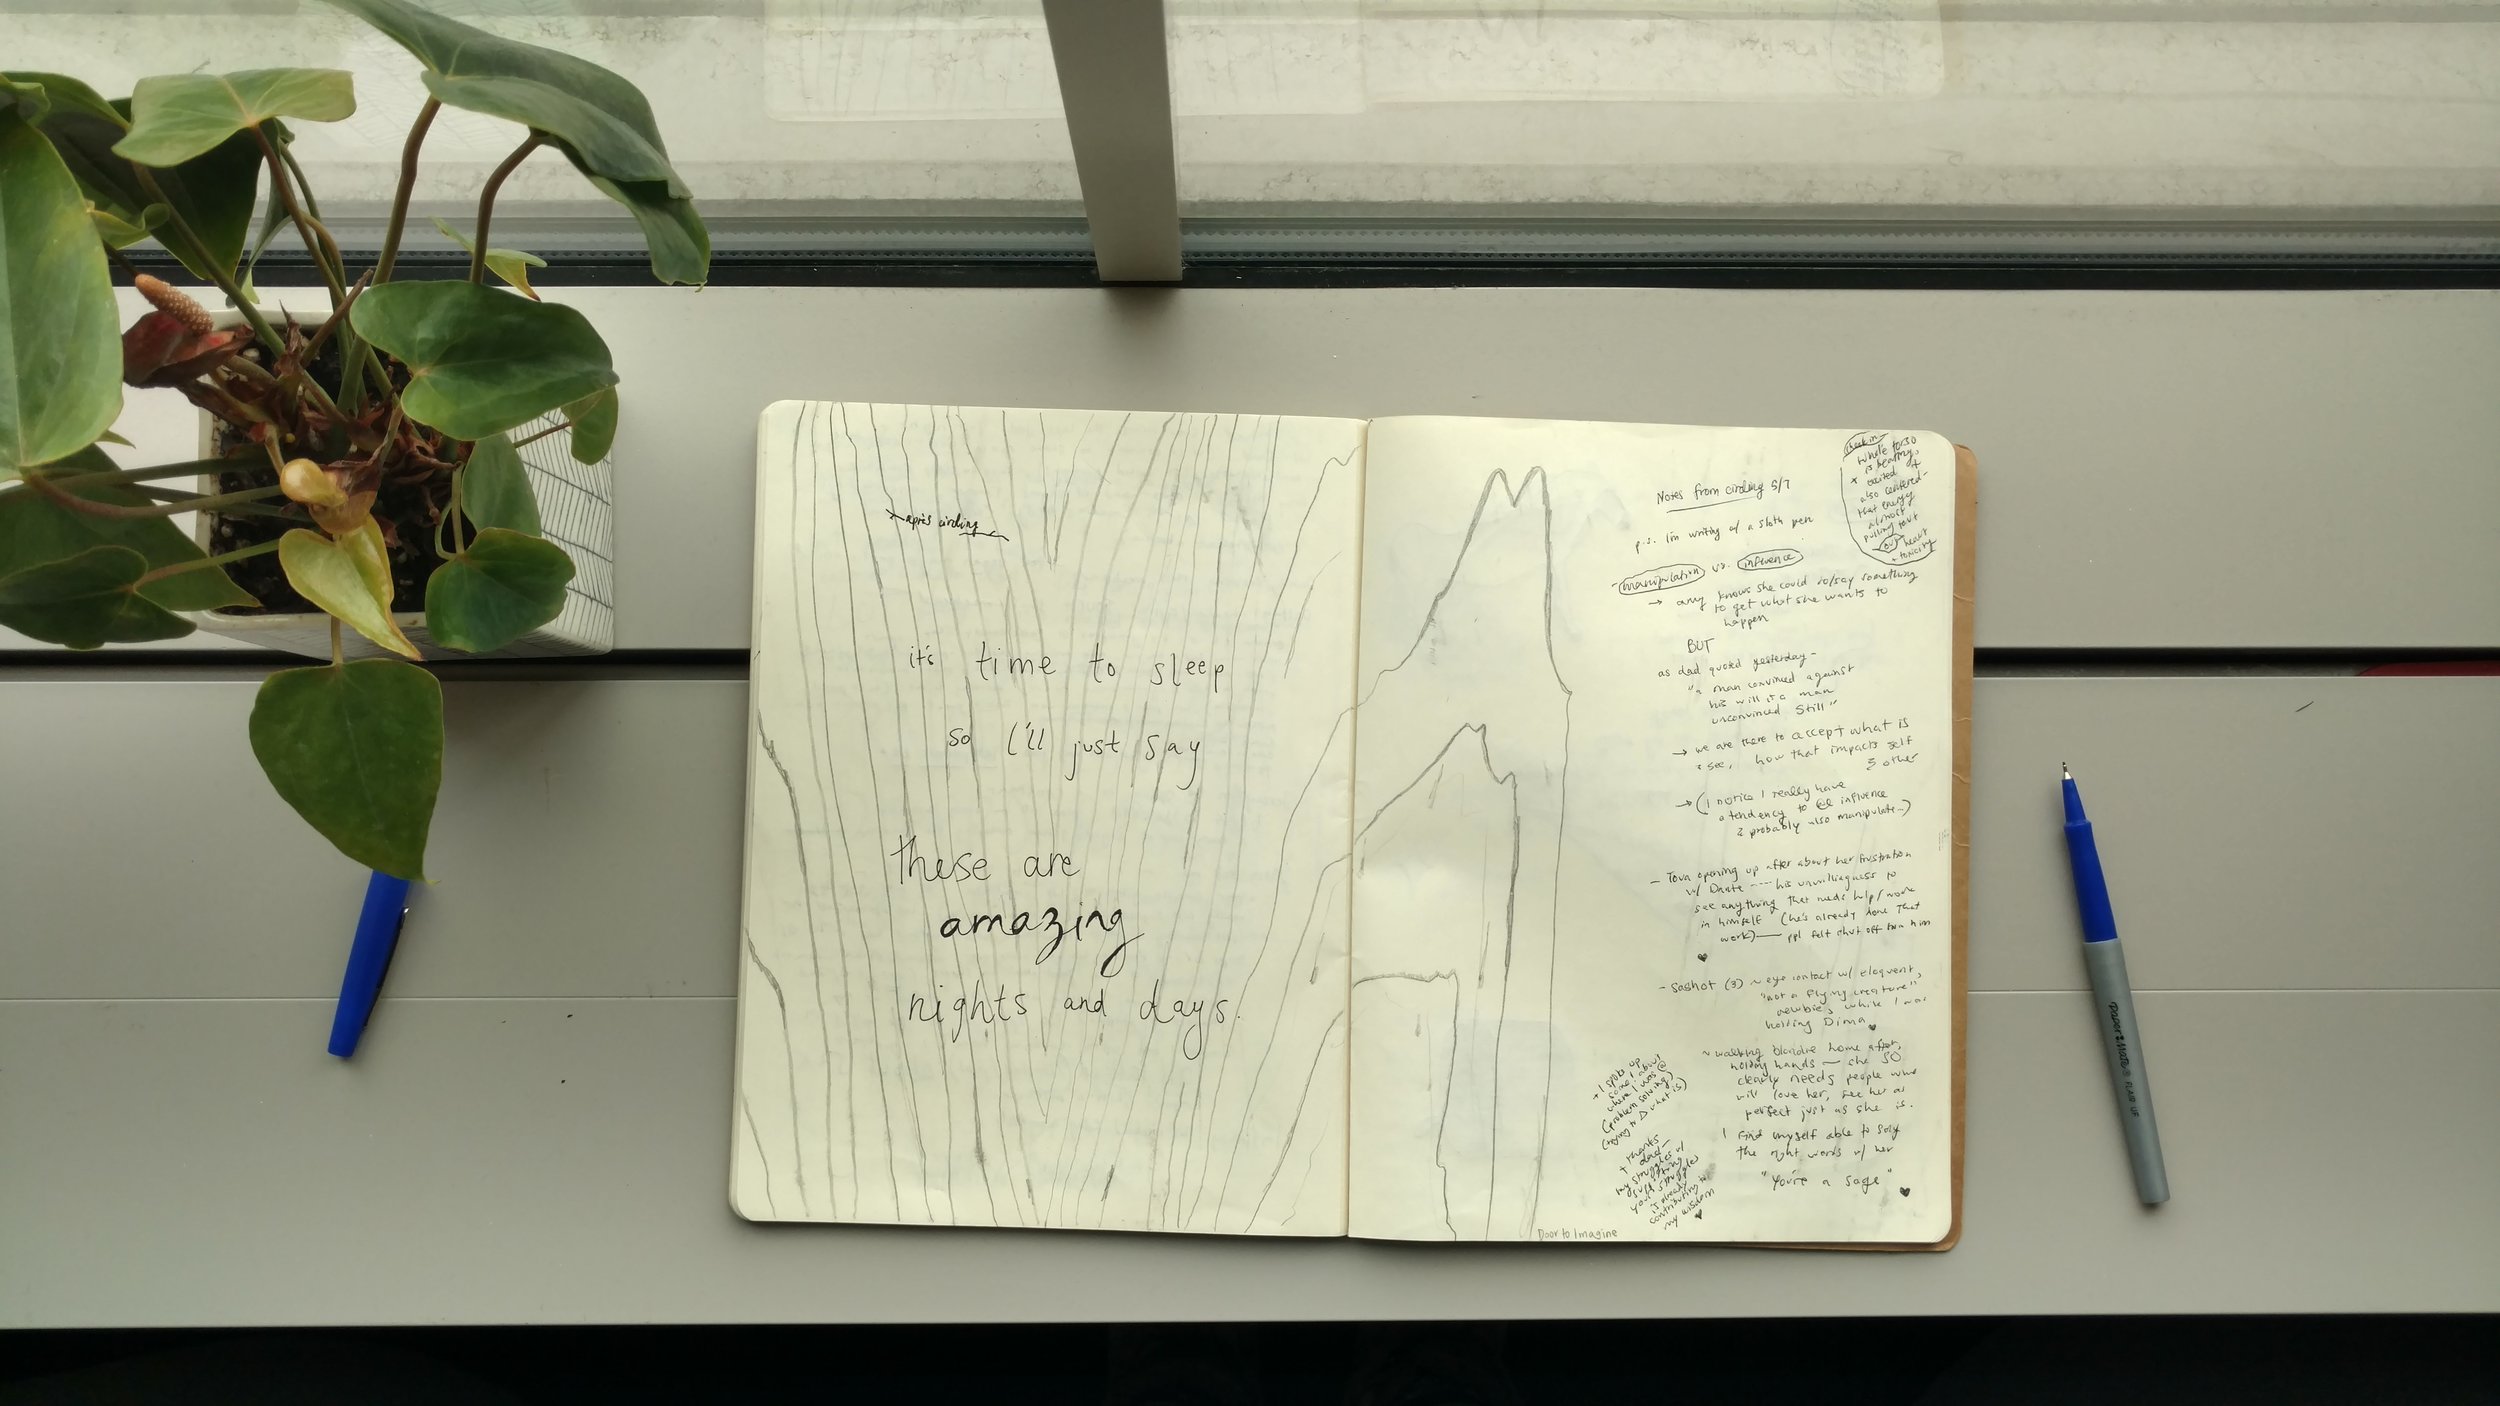 après circling
it's time to sleep
so I'll just say
these are
amazing
nights and days.
check in
whole torso
is beating,
excited +
also centered -
that energy
almost
pulling taut
my heart
Notes from circling 5/7
p.s. I'm writing w/ a sloth pen
- manipulation vs. influence
→ amy knows she could do/say something
to get what she wants to
happen
BUT
as dad quoted yesterday -
"a man convinced against
his will is a man
unconvinced still"
→ we are there to accept what is
& see, how that impacts self
& other
→ (I notice I really have
a tendency to influence
& probably also manipulate...)
- Tova opening up after about her frustration
w/ Dante ---- his unwillingness to
see anything that needs help/work
in himself (he's already done that
work) — ppl felt shut off from him
♥
- Sashot (3) ~ eye contact w/ eloquent,
"not a flying creature"
newbie, while I was
holding Dima ♥
~ walking blondie home after,
holding hands — she SO
clearly needs people who
will love her, see her as
perfect just as she is.
I find myself able to say
the right words w/ her
"You're a sage" ♥
+ I spoke up
some about
where I was @
(problem solving)
(trying to Δ what is)
+ thanks
dad -
my struggles w/
suffering
your struggles
is already
contributing to
my wisdom
♥
Door to Imagine
PaperMate® FLAIR UF